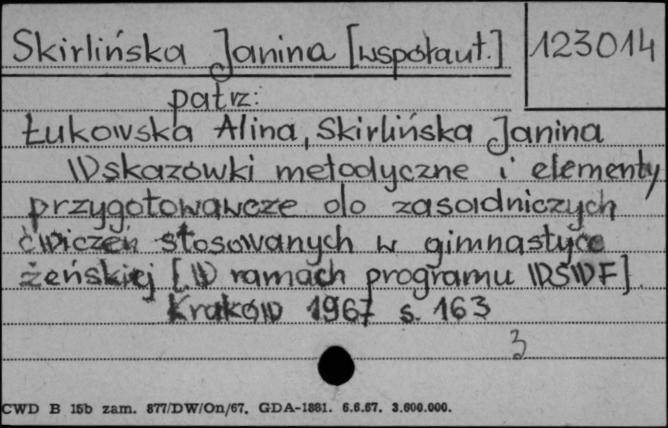 Skirlińska Janina [współaut.] 123014
patrz:
Łukowska Alina, Skirlińska Janina
Wskazówki metodyczne i elementy
przygotowawcze do zasadniczych
ćwiczeń stosowanych w gimnastyce
żeńskiej [W ramach programu WSWF]
Kraków 1967 s. 163
3
CWD B 15b zam. 877/DW/On/67. GDA-1881. 6.6.67. 3.600.000.